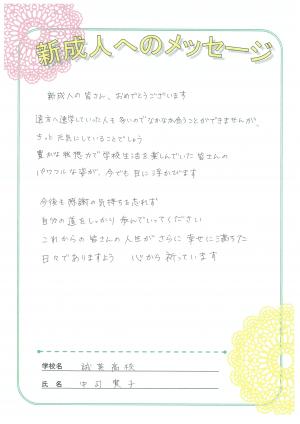 新成人へのメッセージ
新成人の皆さん、おめでとうございます
遠方へ進学していった人も多いのでなかなか会うことができませんが、
きっと元気にしていることでしょう
豊かな発想力で学校生活を楽しんでいた皆さんの
パワフルな姿が、今でも目に浮かびます
今後も感謝の気持ちを忘れず
自分の道をしっかり歩んでいってください
これからの皆さんの人生がさらに幸せに満ちた
日々でありますよう 心から祈っています
学校名 誠英高校
氏名 中司 寛子